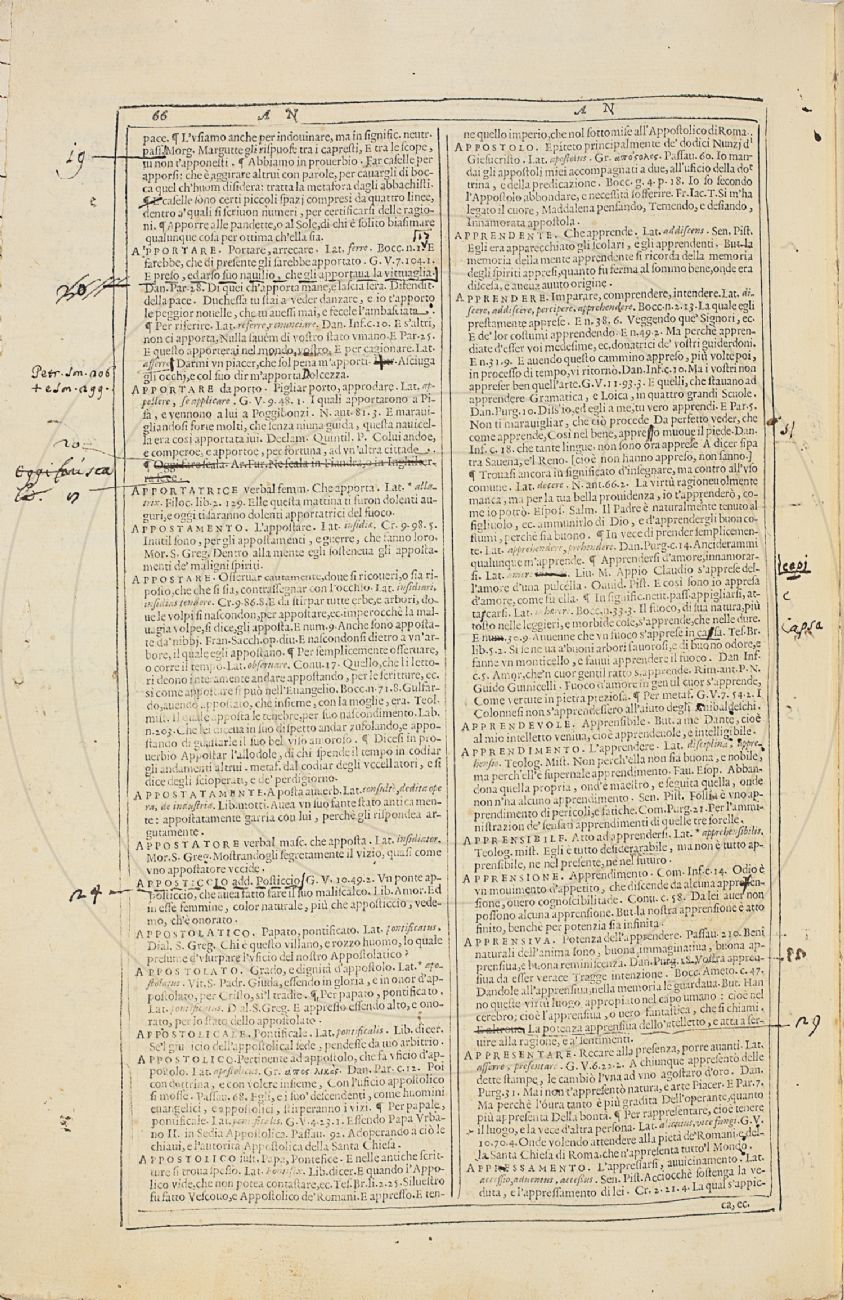 66 A N A N
pace. ¶ L'vsiamo anche per indouinare, ma in signific. neutr.
pass. Morg. Margutte gli rispuose tra i capresti, E tra le scope,
tu non t'apponesti. ¶ Abbiamo in prouerbio. Far caselle per
apporsi: che è aggirare altrui con parole, per cauargli di boc-
ca quel ch'huom disidera: tratta la metafora dagli abbachisti.
¶ E caselle sono certi piccoli spazj compresi da quattro linee,
dentro a' quali si scriuon numeri, per certificarsi delle ragio-
ni. ¶ Apporre alle pandette, o al Sole, di chi è solito biasimare
qualunque cosa per ottima ch'ella sia.
APPORTARE. Portare, arrecare. Lat. ferre. Bocc. n.1. E
sarebbe, che di presente gli sarebbe apportato. G. V. 7. 104. 1.
E preso, ed arso suo nauilio, che gli apportaua la vittuaglia.
Dan. Par. 28. Di quei ch'apporta mane, e lascia sera. Difendit.
della pace. Duchessa tu stai a veder danzare, e io t'apporto
le peggior nouelle, che tu auessi mai, e fecele l'ambasciata.
¶ Per riferire. Lat. referre, renunciare. Dan. Inf. c. 10. E s'altri,
non ci apporta, Nulla sauém di vostro stato vmano. E Par. 25.
E questo apporterai nel mondo vostro. E per cagionare. Lat.
afferre. Darmi vn piacer, che sol pena m'apporti. Asciuga
gli occhi, e col suo dir m'apporta Dolcezza.
APPORTARE da porto. Pigliar porto, approdare. Lat. ap-
pellere, se applicare. G. V. 9. 48. 1. I quali apportarono a Pi-
sa, e vennono a lui a Poggibonzi. N. ant. 81. 3. E maraui-
gliandosi forte molti, che senza niuna guida, questa nauicel-
la era così apportata iui. Declam. Quintil. P. Colui andoe,
e comperoe, e apportoe, per fortuna, ad vn'altra cittade.
APPORTATRICE verbal femm. Che apporta. Lat. * alla-
trix. Filoc. lib. 2. 129. Elle questa mattina ti furon dolenti au-
guri, e oggi ti daranno dolenti apportatrici del fuoco.
APPOSTAMENTO. L'appostare. Lat. insidiæ. Cr. 9. 98. 5.
Inutil sono, per gli appostamenti, e guerre, che fanno loro.
Mor. S. Greg. Dentro alla mente egli sosteneua gli apposta-
menti de' maligni spiriti.
APPOSTARE. Osseruar cautamente, doue si ricoueri, o sia ri-
posto, che che si sia, contrassegnar con l'occhio. Lat. insidiari,
insidias tendere. Cr. 9. 86. 8. E da stirpar tutte erbe, e arbori, do-
ue le volpi si nascondon, per appostare, ec. imperocchè la mal-
uagia volpe, si dice, gli apposta. E num. 9. Anche sono apposta-
te da' nibbj. Fran. Sacch. op. diu. E nascondonsi dietro a vn'ar-
bore, il quale egli appostano. ¶ Per semplicemente osseruare,
o correre il tempo. Lat. obseruare. Conu. 17. Quello, che li letto-
ri deono interamente andare appostando, per le scritture, ec.
si come appostare si può nell'Euangelio. Bocc. n. 71. 8. Gulfar-
do, auendo appostato, che insieme, con la moglie, era. Teol.
mist. Il quale apposta le tenebre, per suo nascondimento. Lab.
n. 203. Che lei diceua in suo dispetto andar zufolando, e appo-
stando di guastarle il suo bel viso amoroso. ¶ Dicesi in pro-
uerbio Appostar l'allodole, di chi spende il tempo in codiar
gli andamenti altrui. metaf. dal codiar degli vccellatori, e si
dice degli scioperati, e de' perdigiorno.
APPOSTATAMENTE. A posta auuerb. Lat. consultò, dedita ope
ra, de industria. Lib. motti. Auea vn suo fante stato antica men-
te: appostatamente garria con lui, perchè gli rispondea ar-
gutamente.
APPOSTATORE verbal masc. che apposta. Lat. insidiator.
Mor. S. Greg. Mostrandogli segretamente il vizio, quasi come
vno appostatore vccide.
APPOSTICCIO add. Posticcio. G. V. 10. 49. 2. Vn ponte ap-
posticcio, che auea fatto fare il suo maliscalco. Lib. Amor. Ed
in esse femmine, color naturale, più che apposticcio, vede-
mo, ch'è onorato.
APPOSTOLATICO. Papato, pontificato. Lat. pontificatus.
Dial. S. Greg. Chi è questo villano, e rozzo huomo, lo quale
presume d'vsurpare l'vficio del nostro Appostolatico?
APPOSTOLATO. Grado, e dignità d'appostolo. Lat. * apo-
stolatus. Vit. S. Padr. Giuda, essendo in gloria, e in onor d'ap-
postolato, per Cristo, sì'l tradie. ¶ Per papato, pontificato.
Lat. pontificatus. Dial. S. Greg. E appresso essendo alto, e ono-
rato, per lo stato dello appostolato.
APPOSTOLICALE. Pontificale. Lat. pontificalis. Lib. dicer.
Se'l giudicio dell'appostolical sede, pendesse da tuo arbitrio.
APPOSTOLICO. Pertinente ad appostolo, che fa vficio d'ap-
postolo. Lat. apostolicus. Gr. ἀποστολικός. Dan. Par. c. 12. Poi
con dottrina, e con volere insieme, Con l'uficio appostolico
si mosse. Passau. 68. Egli, e i suo' descendenti, come huomini
euangelici, e appostolici, stirperanno i vizj. ¶ Per papale,
pontificale. Lat. pontificalis. G. V. 4. 23. 1. Essendo Papa Vrba-
no II. in Sedia Appostolica. Passau. 92. Adoperando a ciò le
chiaui, e l'autorità Appostolica della Santa Chiesa.
APPOSTOLICO sust. Papa, Pontefice. E nelle antiche scrit-
ture si troua spesso. Lat. Pontifex. Lib. dicer. E quando l'Appo-
lico vide, che non potea contastare, ec. Tes. Br. li. 2. 25. Siluestro
fu fatto Vescouo, e Appostolico de' Romani. E appresso. E ten-
ne quello imperio, che nol sottomise all'Appostolico di Roma.
APPOSTOLO. Epiteto principalmente de' dodici Nunzj di
Giesucristo. Lat. apostolus. Gr. ἀπόστολος. Passau. 60. Io man-
dai gli appostoli miei accompagnati a due, all'uficio della dot
trina, e della predicazione. Bocc. g. 4. p. 18. Io so secondo
l'Appostolo abbondare, e necessità sofferire. Fr. Iac. T. Sì m'ha
legato il cuore, Maddalena pensando, Temendo, e desiando,
Innamorata appostola.
APPRENDENTE. Che apprende. Lat. addiscens. Sen. Pist.
Egli era apparecchiato gli scolari, e gli apprendenti. But. la
memoria della mente apprendente si ricorda della memoria
degli spiriti appresi, quanto fu ferma al sommo bene, onde era
discesa, e aueua auuto origine.
APPRENDERE. Imparare, comprendere, intendere. Lat. di-
scere, addiscere, percipere, apprehendere. Bocc. n. 2. 13. La quale egli
prestamente apprese. E n. 38. 6. Veggendo que' Signori, ec.
E de' lor costumi apprendendo. E n. 49. 2. Ma perchè appren-
diate d'esser voi medesime, ec. donatrici de' vostri guiderdoni.
E n. 31. 9. E auendo questo cammino appreso, più volte poi,
in processo di tempo, vi ritornò. Dan. Inf. c. 10. Ma i vostri non
appreser ben quell'arte. G. V. 11. 93. 3. E quelli, che stauano ad
apprendere Gramatica, e Loica, in quattro grandi Scuole.
Dan. Purg. 10. Diss'io, ed egli a me, tu vero apprendi. E Par. 5.
Non ti marauigliar, che ciò procede Da perfetto veder, che
come apprende, Così nel bene, appreso muoue il piede. Dan.
Inf. c. 18. che tante lingue non sono ora apprese A dicer sipa
tra Sauena, e'l Reno. [cioè non hanno appreso, non sanno.]
¶ Trouasi ancora in significato d'insegnare, ma contro all'vso
comune. Lat. docere. N. ant. 66. 2. La virtù ragioneuolmente
manca, ma per la tua bella prouidenza, io t'apprenderò, co-
me io potrò. Espos. Salm. Il Padre è naturalmente tenuto al
figliuolo, ec. ammunirlo di Dio, e d'apprendergli buon co-
stumi, perchè sia buono. ¶ In vece di prender semplicemen-
te. Lat. apprehendere, prehendere. Dan. Purg. c. 14. Anciderammi
qualunque m'apprende. ¶ Apprendersi d'amore, innamorar-
si. Lat. amor. Liu. M. Appio Claudio s'apprese del-
l'amore d'una pulcella. Ouuid. Pist. E così sono io appresa
d'amore, come fu ella. ¶ In signific. neut. pass. appigliarsi, at-
taccarsi. Lat. adhærere. Bocc. n. 33. 3. Il fuoco, di sua natura, più
tosto nelle leggieri, e morbide cose, s'apprende, che nelle dure.
E num. 30. 9. Auuenne che vn fuoco s'apprese in cassa. Tes. Br.
lib. 5. 2. Si se ne ua a' buoni arbori sauorosi, e di buono odore, e
fanne vn monticello, e fauui apprendere il fuoco. Dan. Inf.
c. 5. Amor, che'n cuor gentil ratto s'apprende. Rim. ant. P. N.
Guido Guinicelli. Fuoco d'amore in gentil cuor s'apprende,
Come vertute in pietra preziosa. ¶ Per metaf. G. V. 7. 54. 2. I
Colonnesi non s'apprendessero all'aiuto degli Annibaldeschi.
APPRENDEVOLE. Apprensibile. But. a me Dante, cioè
al mio intelletto venuta, cioè apprendeuole, e intelligibile.
APPRENDIMENTO. L'apprendere. Lat. disciplina, appre-
hensio. Teolog. Mist. Non perch'ella non sia buona, e nobile,
ma perch'ell'è supernale apprendimento. Fau. Esop. Abban-
dona quella propria, ond'è maestro, e seguita quella, onde
non n'ha alcuno apprendimento. Sen. Pist. Follia è vno ap-
prendimento di pericoli, e fatiche. Com. Purg. 21. Per l'ammi-
nistrazion de' sensati apprendimenti di quelle tre sorelle.
APPRENSIBILE. Atto ad apprendersi. Lat. * apprehensibilis.
Teolog. mist. Egli è tutto desiderabile, ma non è tutto ap-
prensibile, ne nel presente, nè nel futuro.
APPRENSIONE. Apprendimento. Com. Inf. c. 14. Odio è
vn mouimento d'appetito, che discende da alcuna appren-
sione, ouero cognoscibilitade. Conu. c. 58. Da lei auer non
possono alcuna apprensione. But. la nostra apprensione è atto
finito, benchè per potenzia sia infinita.
APPRENSIVA. Potenza dell'apprendere. Passau. 230. Beni
naturali dell'anima sono, buona immaginatiua, buona ap-
prensiua, e buona reminiscenza. Dan. Purg. 18. Vostra appren-
siua da esser verace Tragge intenzione. Bocc. Ameto. c. 47.
Dandole all'apprensiua, nella memoria le guardaua. But. Han
no queste virtù luogo appropiato nel capo umano: cioè nel
cerebro; cioè l'apprensiua, o uero fantastica, che si chiami.
E altroue. La potenza apprensiua dello'ntelletto, è atta a ser-
uire alla ragione, e a' sentimenti.
APPRESENTARE. Recare alla presenza, porre auanti. Lat.
afferre, presentare. G. V. 6. 22. 2. A chiunque appresentò delle
dette stampe, le cambiò l'vna ad vno agostaro d'oro. Dan.
Purg. 31. Mai non t'appresentò natura, e arte Piacer. E Par. 7.
Ma perchè l'oura tanto è più gradita Dell'operante, quanto
più appresenta Della bontà. ¶ Per rappresentare, cioè tenere
il luogo, e la vece d'altra persona. Lat. alicuius vice fungi. G. V.
10. 70. 4. Onde volendo attendere alla pietà de' Romani, e del-
la Santa Chiesa di Roma, che n'appresenta tutto'l Mondo.
APPRESSAMENTO. L'appressarsi, auuicinamento. Lat.
accessio, aduentus, accessus. Sen. Pist. Acciocchè sostenga la ve-
duta, e l'appressamento di lei. Cr. 2. 21. 4. La qual s'appic-
ca, ec.
19
e
20
24
51
e
capsa
29